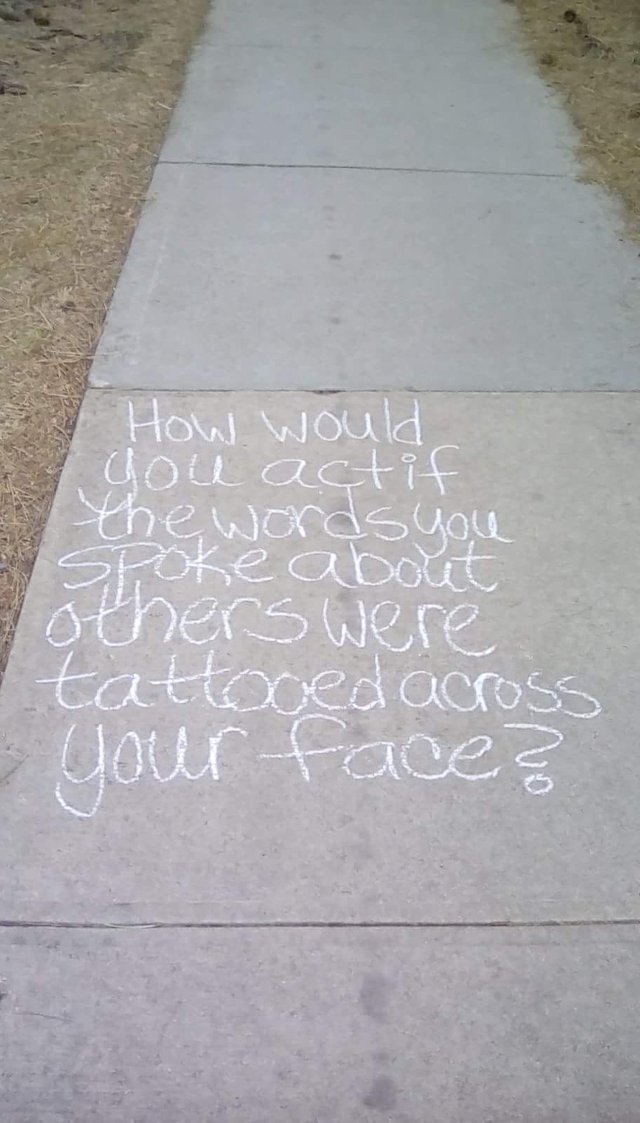 How would
you act if
the words you
spoke about
others were
tattooed across
your face?